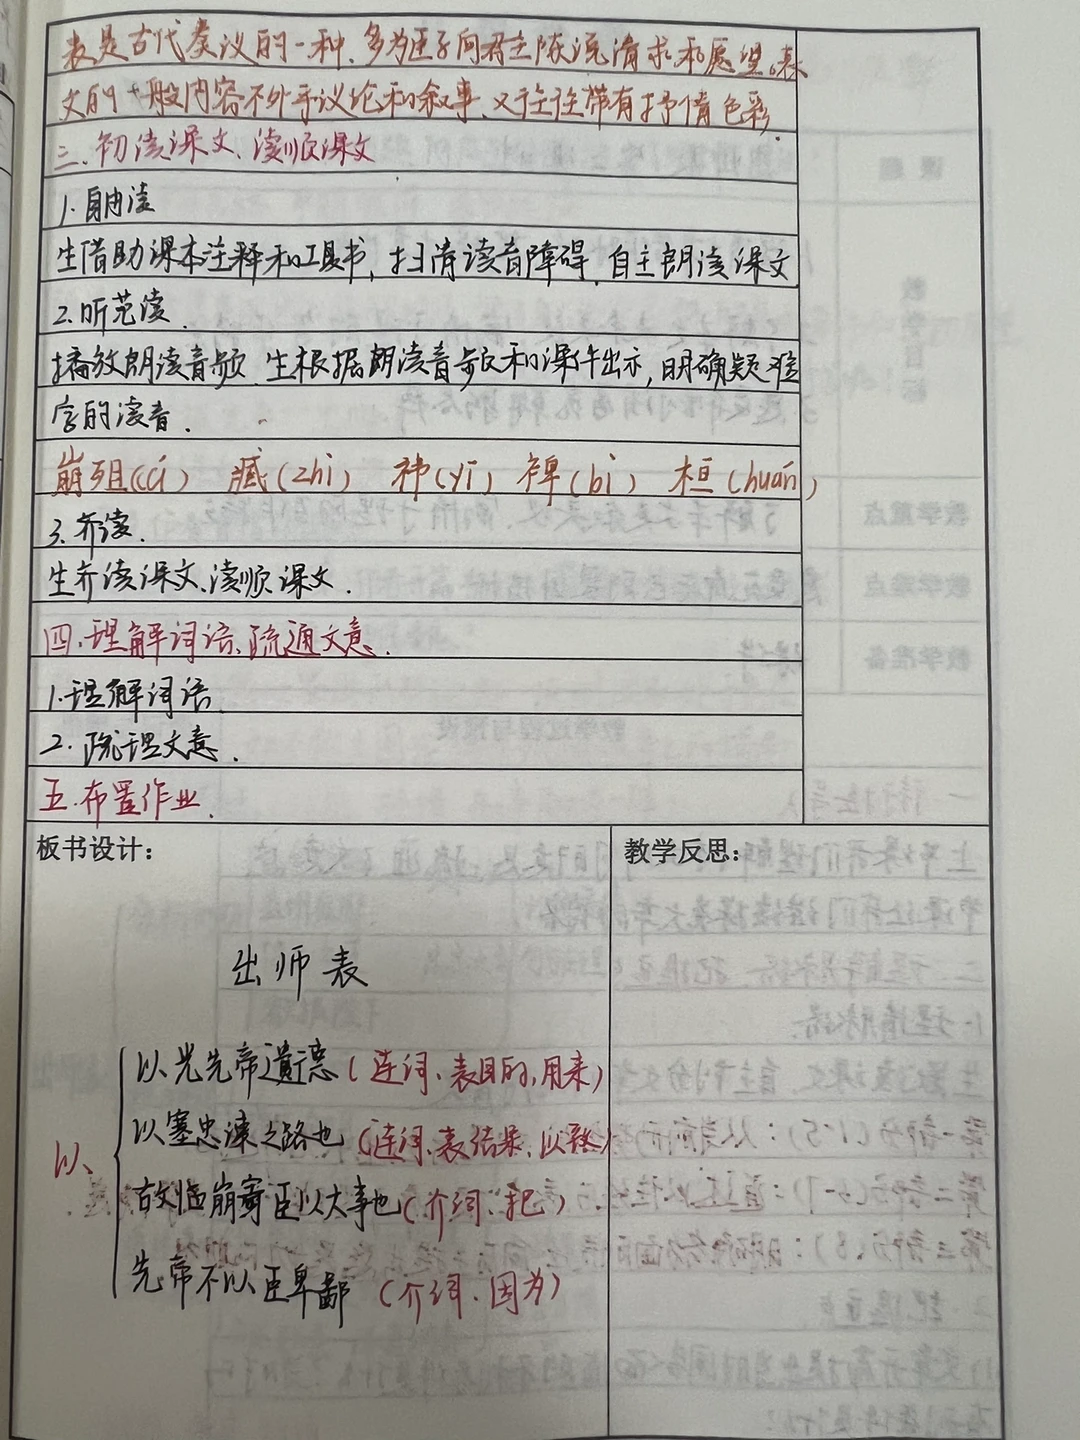 表是古代奏议的一种，多为臣子向君主陈说请求和愿望。表
文的一般内容不外乎议论和叙事，又往往带有抒情色彩．
三、初读课文、读顺课文
1.自由读
生借助课本注释和工具书，扫清读音障碍，自主朗读课文
2.听范读．
播放朗读音频，生根据朗读音频和课件出示，明确疑难
字的读音．
崩殂(cú) 臧(zhǐ) 祎(yī) 裨(bì) 桓(huán)
3.齐读．
生齐读课文、读顺课文．
四.理解词语、疏通文意．
1.理解词语
2.疏理文意．
五.布置作业．
板书设计：
出师表
以
以光先帝遗德(连词、表目的，用来)
以塞忠谏之路也(连词、表结果，以致)
故临崩寄臣以大事也(介词、把)
先帝不以臣卑鄙 (介词、因为)
教学反思：